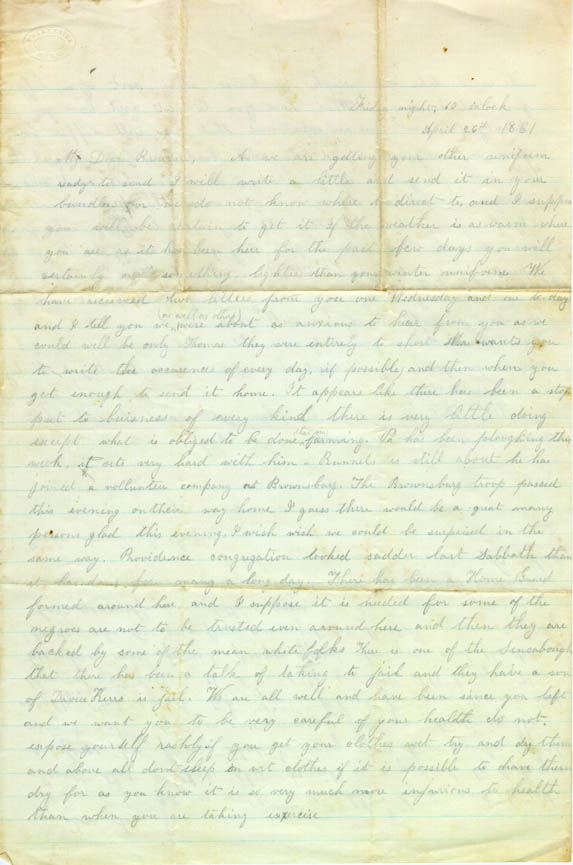 Friday night, 10 oclock
April 26th 1861
My Dear Brother, As we are getting your other uniform
ready to send I will write a little and send it in your
bundle for we do not know where to direct to, and I suppose
you will be certain to get it if the weather is as warm where
you are as it has been here for the past few days you will
certainly need something lighter than your winter uniform We
have received two letters from you one Wednesday and one to day
(as well as others)
and I tell you we were about as anxious to hear from you as we
could well be only Thomas they were entirely to short Ma wants you
to write the occurences of every day, if possible, and then when you
get enough to send it home. It appears like there has been a stop
put to buisness of every kind there is very little doing
except what is obliged to be done farming. Pa has been ploughing this
week, it sets very hard with him. Runnels is still about he has
joined a vollunteer company at Brownsburg. The Brownsburg troop passed
this evening on their way home I guess there would be a great many
persons glad this evening, I wish wish we could be surprised in the
same way. Providence congregation looked sadder last Sabbath than
it has done for many a long day. There has been a Home Guard
formed around here and I suppose it is needed for some of the
negroes are not to be trusted even around here and then they are
backed by some of the mean white folks there is one of the Sensabaugh
that there has been a talk of taking to jail and they have a son
of Davie Kerrs in jail. We are all well and have been since you left
and we want you to be very careful of your health do not,
expose yourself rashly, if you get your clothes wet try and dry them
and above all dont sleep in wet clothes if it is possible to have them
dry for as you know it is so very much more injurious to health
than when you are taking exercise